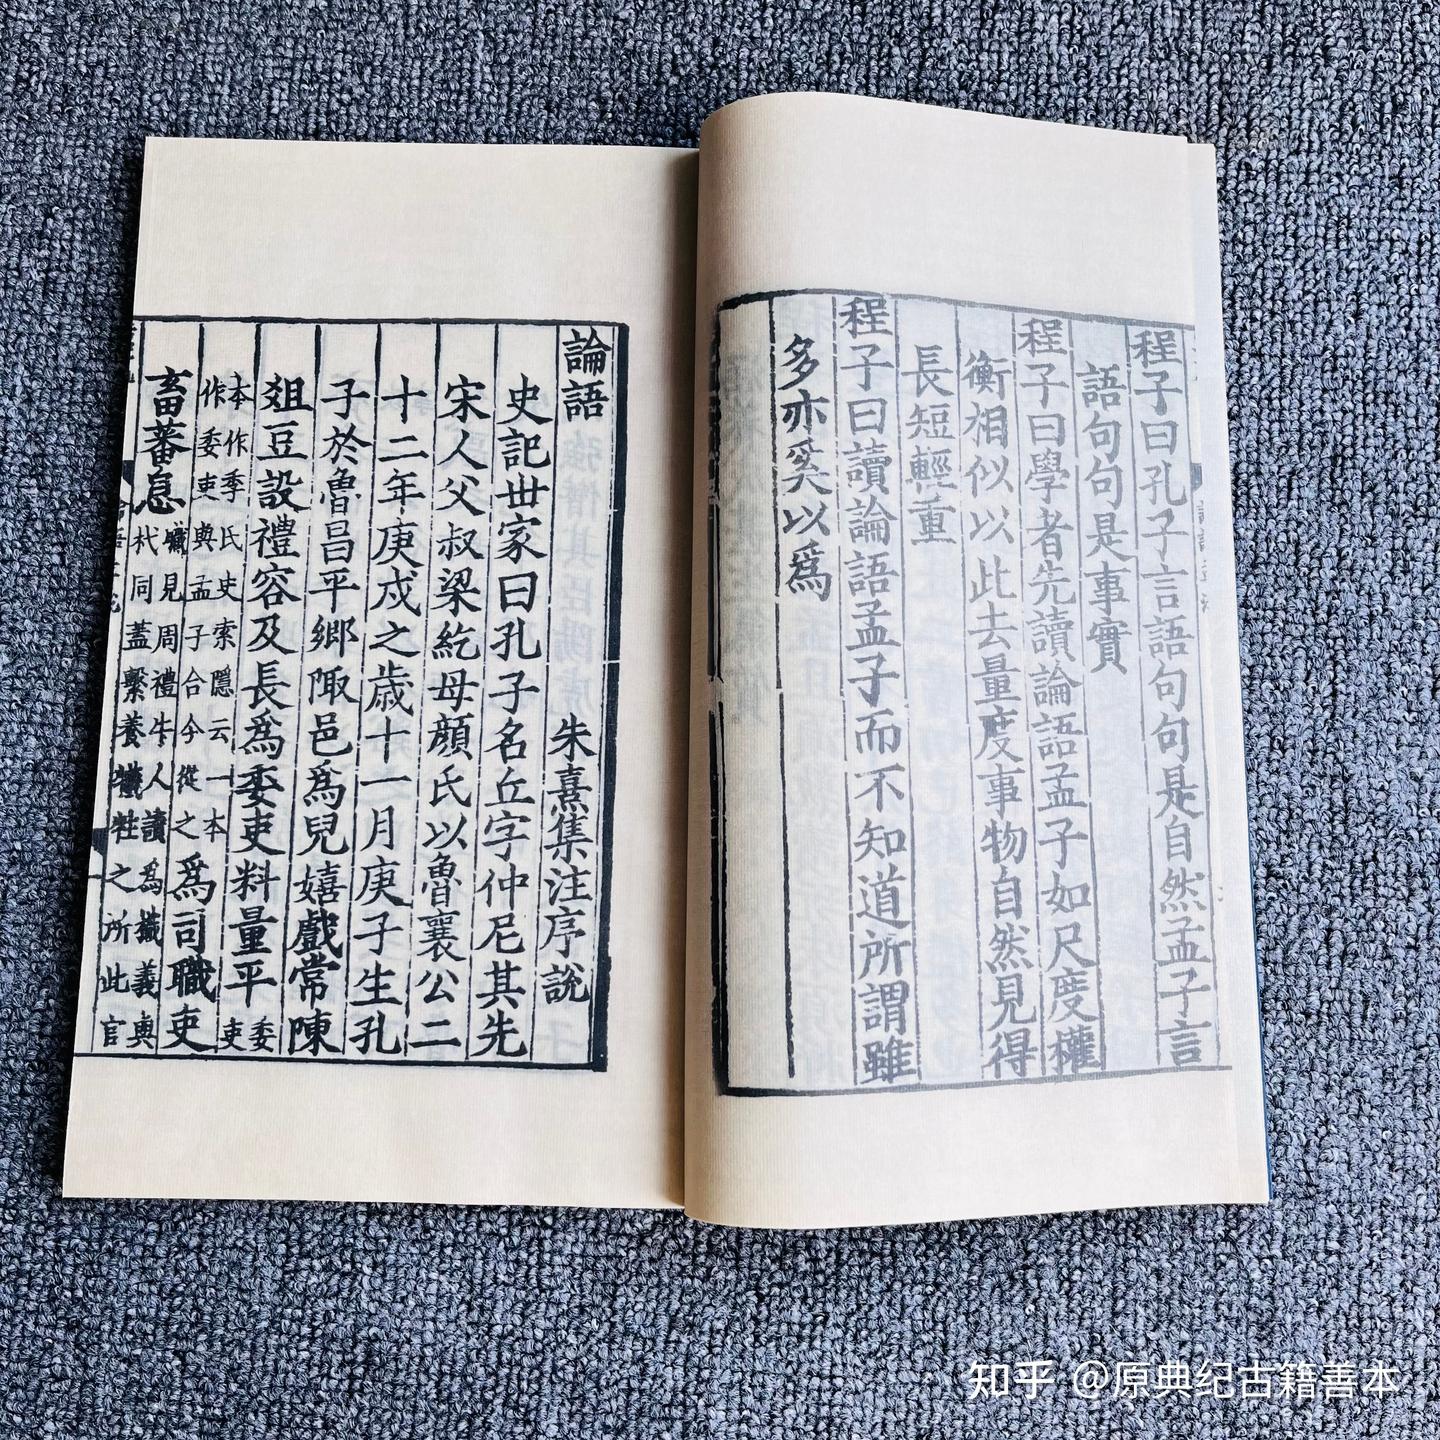 程子曰孔子言語句句是自然孟子言
語句句是事實
程子曰學者先讀論語孟子如尺度權
衡相似以此去量度事物自然見得
長短輕重
程子曰讀論語孟子而不知道所謂雖
多亦奚以爲
論語 朱熹集注序說
史記世家曰孔子名丘字仲尼其先
宋人父叔梁紇母顏氏以魯襄公二
十二年庚戍之歲十一月庚子生孔
子於魯昌平鄉陬邑爲兒嬉戲常陳
俎豆設禮容及長爲委吏料量平
委
吏
本作季氏史索隱云一本
作委吏與孟子合今從之
爲司職吏
畜蕃息
職見周禮牛人讀爲樴義與
杙同蓋繫養犧牲之所此官
知乎 @原典纪古籍善本